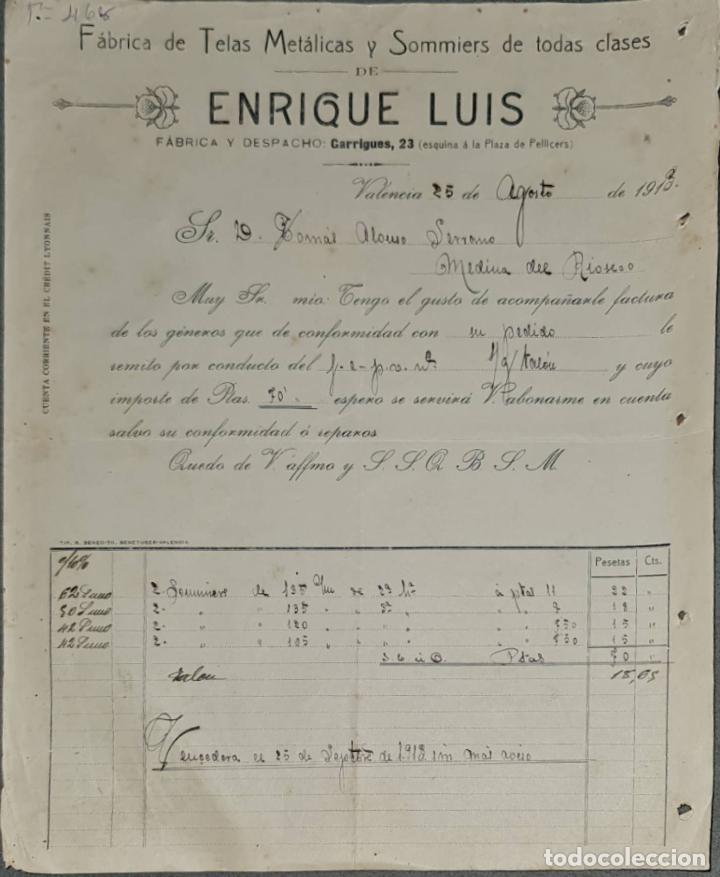 468
Fábrica de Telas Metálicas y Sommiers de todas clases
DE
ENRIQUE LUIS
FÁBRICA Y DESPACHO: Garrigues, 23 (esquina á la Plaza de Pellicers)
Valencia 25 de Agosto de 1913.
Sr. D. Tomás Alonso Serrano
Medina del Rioseco
Muy Sr. mio: Tengo el gusto de acompañarle factura
de los géneros que de conformidad con su pedido le
remito por conducto del f-c-p.v. talón y cuyo
importe de Ptas. 70' espero se servirá V. abonarme en cuenta
salvo su conformidad ó reparos
Quedo de V. affmo y S. S. Q. B. S. M.
CUENTA CORRIENTE EN EL CRÉDIT LYONNAIS
TIP. R. BENEDITO, BENETUSER-VALENCIA
Pesetas Cts.
2 Sommiers de 135 de 2ª á ptas 11 22 "
2 " " 135 " 3ª " " 9 18 "
2 " " 120 " " " " 7'50 15 "
2 " " 105 " " " " 7'50 15 "
S. E. ú O. Ptas 70 "
talon 18,05
Vencedera el 25 de Septbre de 1913 sin más aviso
todocoleccion